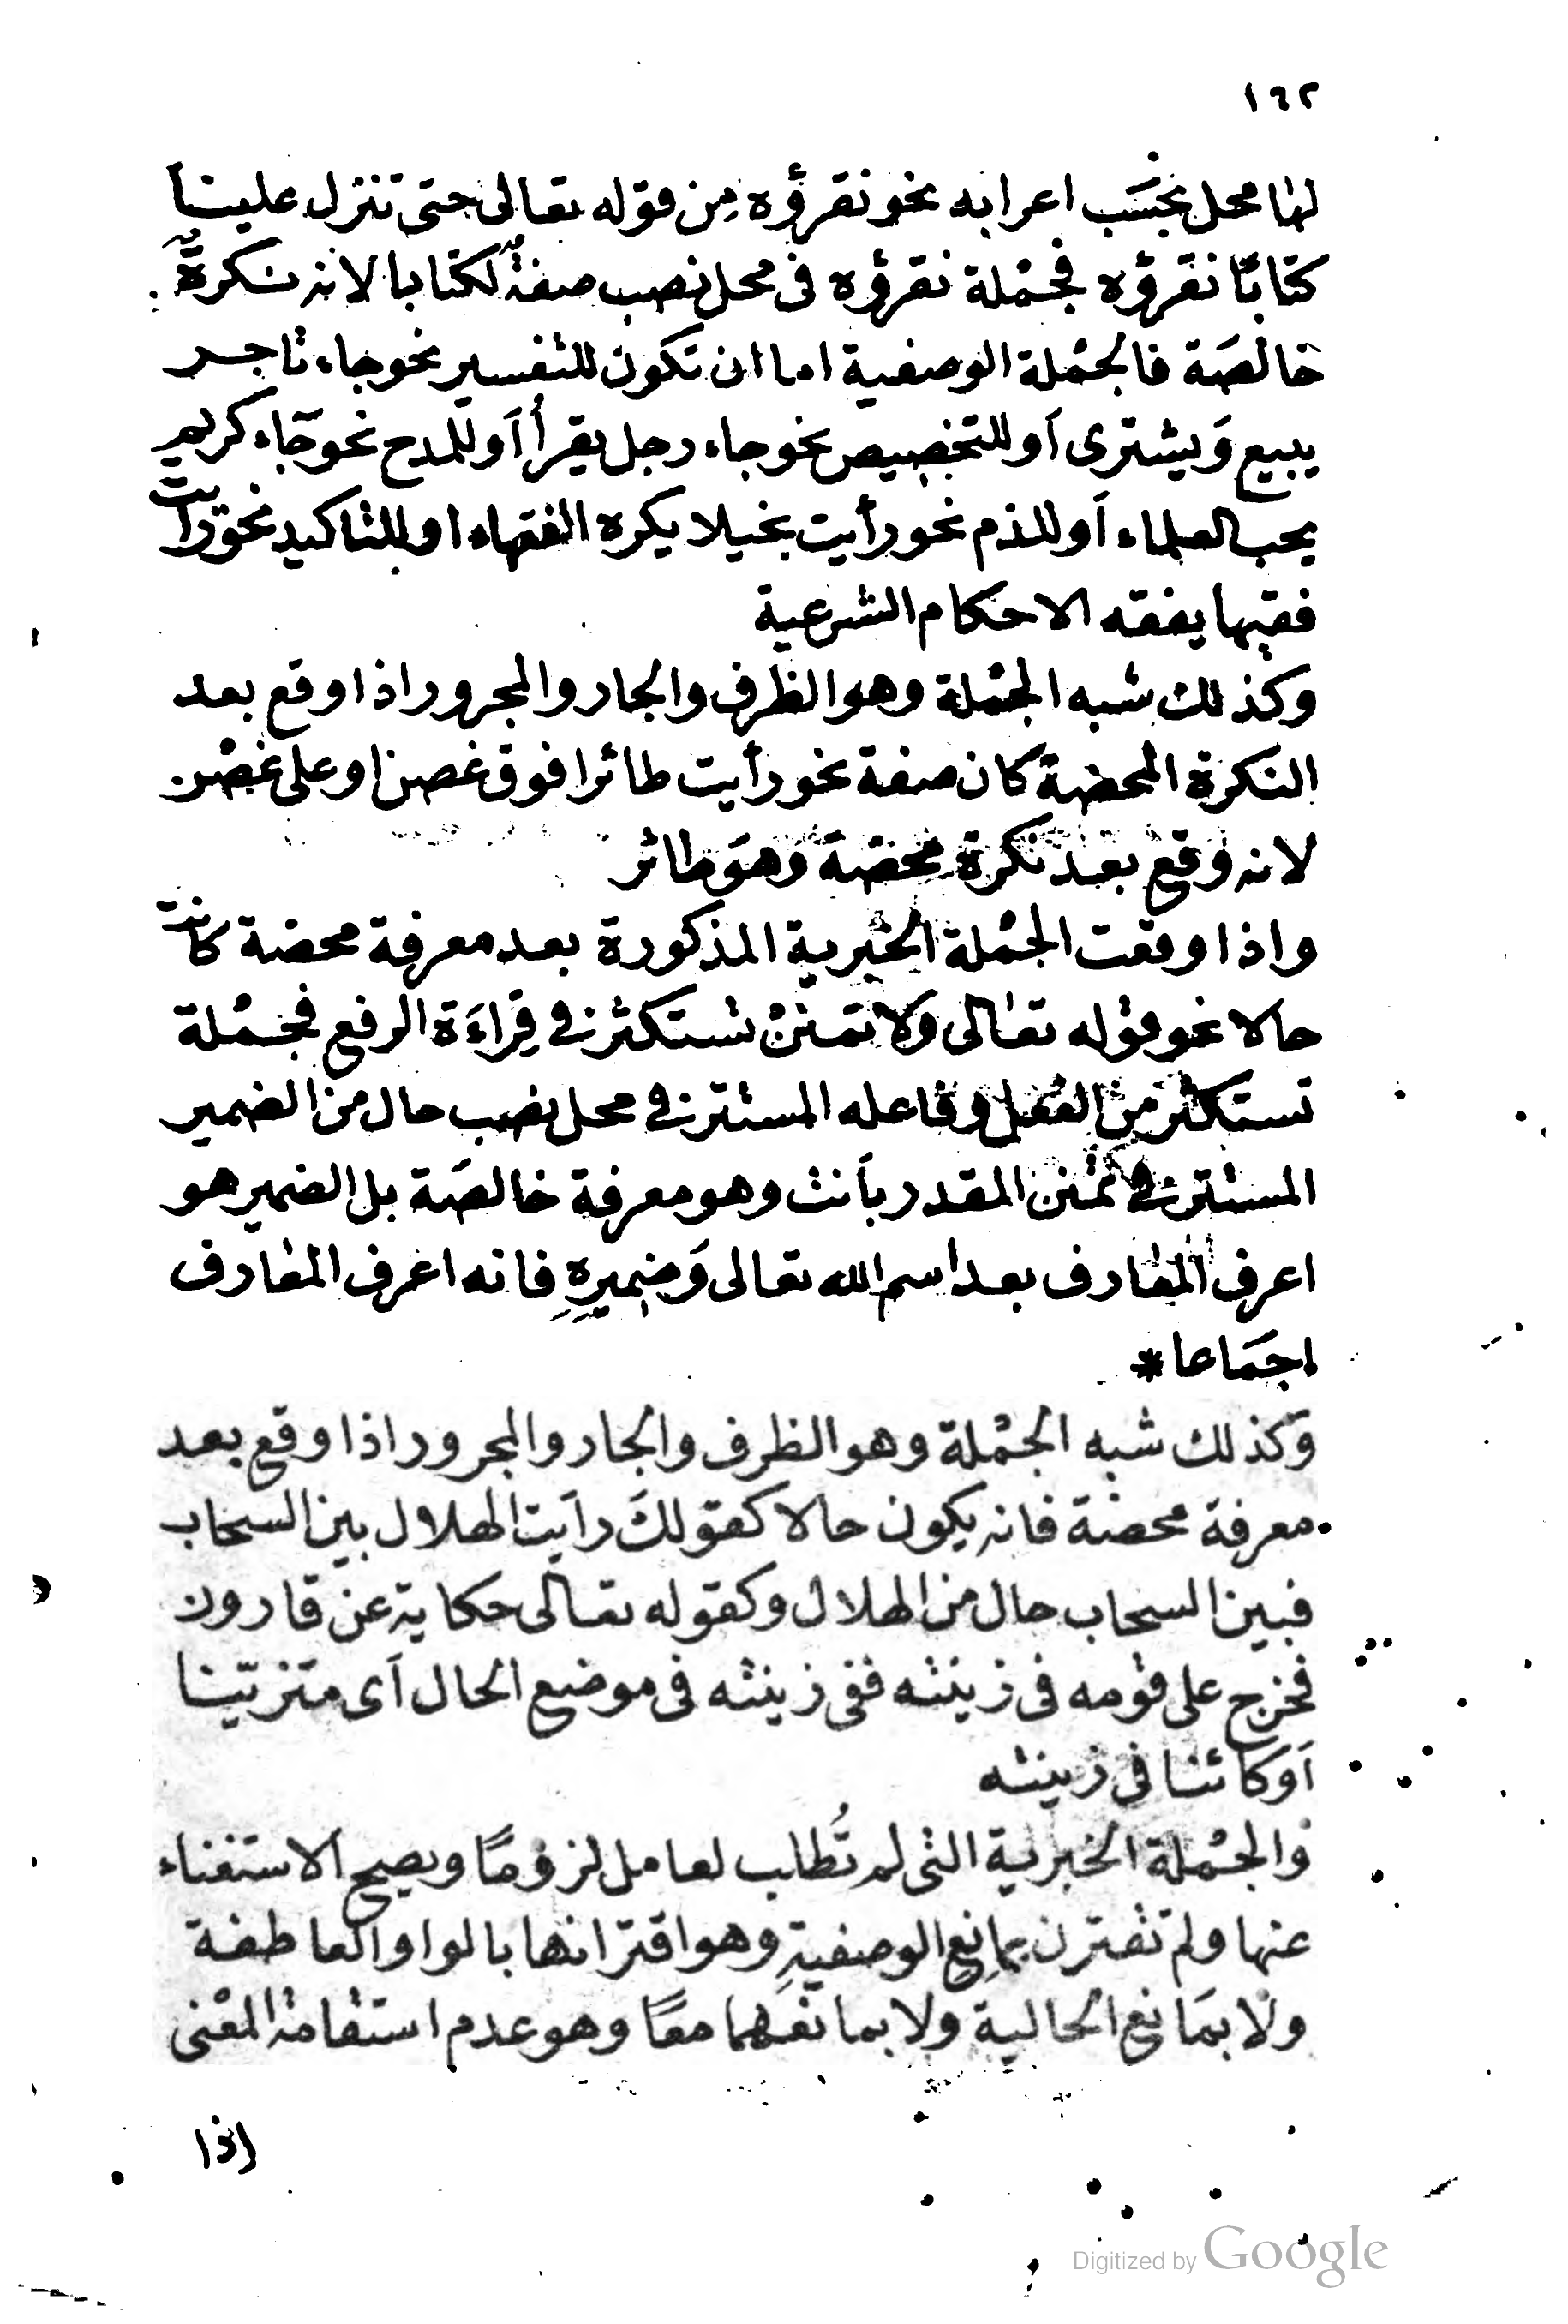 ١٦٢
لها محل بحَسَب اعرابه نحو نقرؤه مِن قوله تعالى حتى تنزل علينا
كتابًا نقرؤه فجمْلة نقرؤه فى محل نصب صفةٌ لكتابا لانه نكرةٌ
خالصَة فالجمْلة الوصفية اما ان تكون للتفسير نحو جاء تاجر
يبيع وَيشترى اَو للتخصيص نحو جاء رجل يقرأ اَو للمدح نحو جَاء كريم
يحب العلماء اَو للذم نحو رأيت بخيلا يكره الفقهاء او للتاكيد نحو رايت
فقيها يفقه الاحكام الشرعية
وكذلك شبه الجمْلة وهو الظرف والجار والمجرور اذا وقع بعد
النكرة المحضة كان صفة نحو رأيت طائرا فوق غصن او على غصْن
لانه وقع بعد نكرة محضة وَهوَ طائر
واذا وقعت الجمْلة الخبرية المذكورة بعد معرفة محضة كانت
حالا نحو قوله تعالى وَلا تمننْ تستكثر فى قِراءَة الرفع فجمْلة
تستكثر من الفعل وفاعله المستتر فى محل نصب حال من الضمير
المستتر فى تمنن المقدر باَنت وهو معرفة خالصَة بل الضمير هو
اعرف المعارف بعد اسم الله تعالى وَضميرِهِ فانه اعرف المعارف
اجمَاعا *
وَكذلك شبه الجمْلة وهو الظرف والجار والمجرور اذا وقع بعد
معرفة محضة فانه يكون حالا كقولكَ راَيت الهلال بين السحاب
فبين السحاب حال من الهلال وكقوله تعالى حكاية عن قارون
فخرج على قومه فى زينته ففى زينته فى موضع الحال اَى متزيّنا
اَو كائنا فى زينته
وَالجمْلة الخبرية التى لم تُطلب لعامل لزومًا ويصح الاستغناء
عنها ولم تقترن بمانِع الوصفيةِ وهو اقترانها بالواو العاطفة
ولا بمَانع الحالية ولا بمانعهما معًا وهو عدم استقامة المعْنى
اذا
Digitized by Google